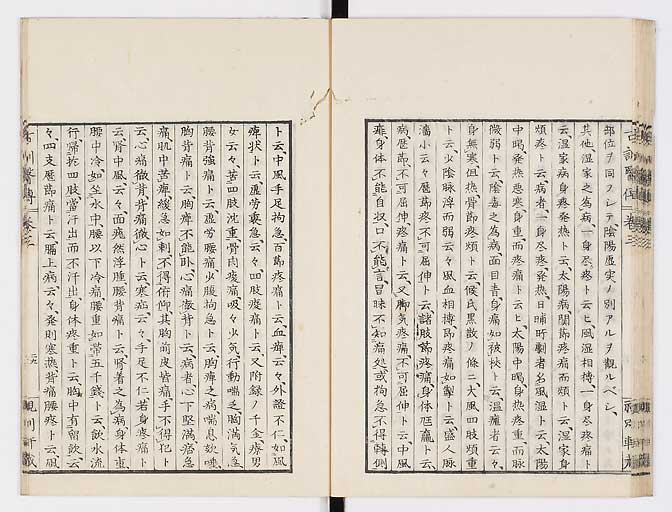 部位ヲ同フシテ陰陽虚実ノ別アルヲ観ルベシ、
其他湿家之為病、一身尽疼ト云ヒ風湿相搏、一身尽疼痛ト
云、湿家病身疼発熱ト云太陽病関節疼痛而煩ト云、湿家身
煩疼ト云、病者一身尽疼、発熱、日晡所劇者名風湿ト云太陽
中暍、発熱悪寒、身重而疼痛ト云ヒ、太陽中暍身熱疼重而脉
微弱ト云、陰毒之為病面目青、身痛如被杖ト云、温瘧者云々、
身無寒但熱、骨節疼煩ト云、侯氏黒散ノ條ニ大風四肢煩重
ト云、少陰脉浮而弱云々、風血相搏節疼痛如掣ト云、盛人脉
濇小云々、歴節疼不可屈伸ト云、諸肢節疼痛、身体尫羸ト云
病歴節、不可屈伸、疼痛ト云、又脚気疼痛、不可屈伸ト云、中風
痱、身体不能自収口不能言、冒昧不知痛処或拘急不得轉側
ト云、中風手足拘急、百節疼痛ト云、血痺云々、外證不仁、如風
痺状ト云虚労裏急云々、四肢痠痛ト云又附録ノ千金療男
女云々、苦四肢沈重、骨肉痠痛吸々少気、行動喘乏、胸満気急
腰背強痛ト云、虚労腰痛少腹拘急ト云、胸痺之病、喘息欬唾
胸背痛ト云、胸痺不能臥、心痛徹背ト云、病者心下堅満痞急
痛、肌中苦痺、緩急如刺不得俯仰、其胸前皮皆痛手不得犯ト
云、心痛徹背背痛徹心ト云、寒疝云々、手足不仁若身疼痛ト
云、腎中風云々、面尨然浮腫腰背痛ト云、腎著之為病身体重
腰中冷如坐水中腰以下冷痛腹重如帯五千銭ト云、飲水流
行、帰於四肢當汗出而不汗出身体疼重ト云、胸中有留飲云
々、四支歴節痛ト云、膈上病云々、発則寒熱、背痛腰疼ト云、風